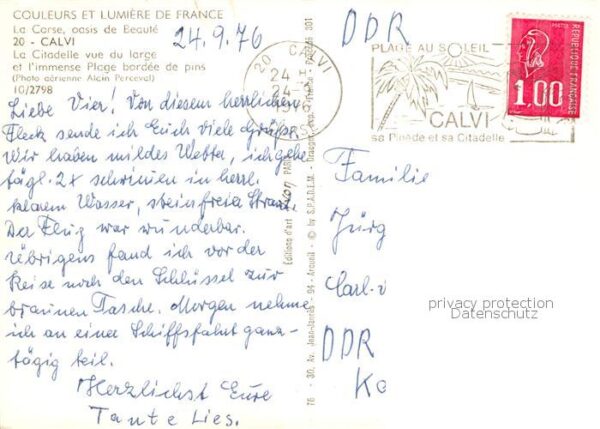 COULEURS ET LUMIÈRE DE FRANCE
La Corse, oasis de Beauté
20 - CALVI
La Citadelle vue du large
et l'immense Plage bordée de pins
(Photo aérienne Alain Perceval)
10/2798
24.9.76
Liebe Vier! Von diesem herrlichen
Fleck sende ich Euch viele Grüße.
Wir haben mildes Wetter, ich gehe
tägl. 2x schwimmen in herrl.
klarem Wasser, steinfreier Strand.
Der Flug war wunderbar.
Übrigens fand ich vor der
Reise noch den Schlüssel zur
braunen Tasche. Morgen nehme
ich an einer Schiffsfahrt ganz-
tägig teil.
Herzlichst Eure
Tante Lies.
Editions d'art PARIS
76 - 30, Av. Jean-Jaurès - 94 - Arcueil - © by S.P.A.D.E.M. - 301
20 CALVI
24
PLAGE AU SOLEIL
CALVI
sa Pinède et sa Citadelle
REPUBLIQUE FRANÇAISE
1,00
DDR
Familie
Jürg
Carl-
DDR
privacy protection
Datenschutz